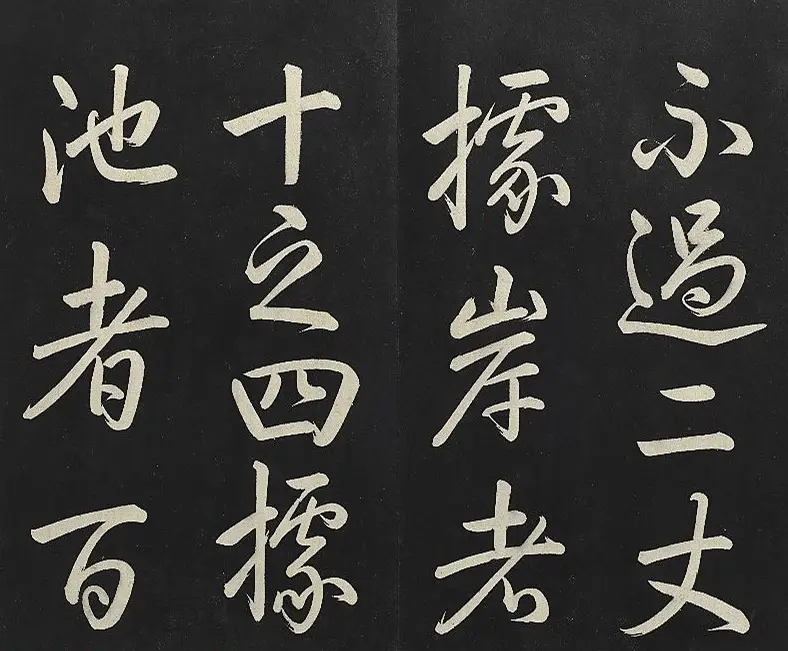 不過二丈
據岸者
十之四據
池者百